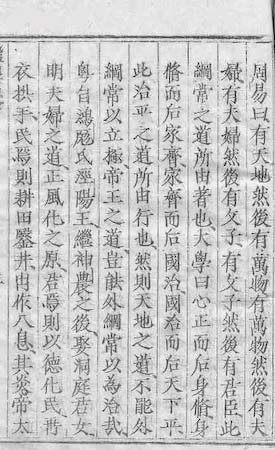 周易曰有天地然後有萬物有萬物然後有夫
婦有夫婦然後有父子有父子然後有君臣此
綱常之道所由著也大學曰心正而后身脩身
脩而后家齊家齊而后國治國治而后天下平
此治平之道所由行也然則天地之道不能外
綱常以立極帝王之道豈能外綱常以為治哉
粵自鴻厖氏涇陽王繼神農之後娶洞庭君女
明夫婦之道正風化之原君焉則以德化民垂
衣拱手民焉則耕田鑿井出作入息其炎帝太